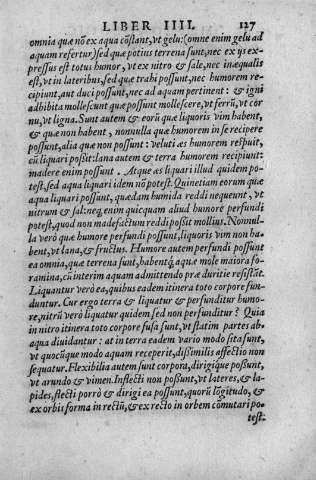 LIBER IIII. 127
omnia quæ nõ ex aqua cõstant, vt gelu: (omne enim gelu ad
aquam refertur) sed quæ potius terrena sunt, nec ex ijs ex-
pressus est totus humor, vt ex nitro & sale, nec inæqualis
est, vt in lateribus, sed quæ trahi possunt, nec humorem re-
cipiunt, aut duci possunt, nec ad aquam pertinent: & igni
adhibita mollescunt quæ possunt mollescere, vt ferrũ, vt cor
nu, vt ligna. Sunt autem & eorũ quæ liquoris vim habent,
& quæ non habent, nonnulla quæ humorem in se recipere
possunt, alia quæ non possunt: veluti æs humorem respuit,
cũ liquari possit: lana autem & terra humorem recipiunt:
madere enim possunt. Atque æs liquari illud quidem po-
test, sed aqua liquari idem nõ potest. Quinetiam eorum quæ
aqua liquari possunt, quædam humida reddi nequeunt, vt
nitrum & sal: neq; enim quicquam aliud humore perfundi
potest, quod non madefactum reddi possit mollius. Nonnul-
la verò quæ humore perfundi possunt, liquoris vim non ha-
bent, vt lana, & fructus. Humore autem perfundi possunt
ea omnia, quæ terrena sunt, habentq́; aquæ mole maiora fo-
ramina, cũ interim aquam admittendo præ duritie resistãt.
Liquantur verò ea, quibus eadem itinera toto corpore fun-
duntur. Cur ergo terra & liquatur & perfunditur humo-
re, nitrũ verò liquatur quidem sed non perfunditur? Quia
in nitro itinera toto corpore fusa sunt, vt statim partes ab-
aqua diuidantur: at in terra eadem vario modo sita sunt,
vt quocũque modo aquam receperit, dissimilis affectio non
sequatur. Flexibilia autem sunt corpora, dirigiq́ue possũt,
vt arundo & vimen. Inflecti non possunt, vt lateres, & la-
pides, flecti porrò & dirigi ea possunt, quorũ lõgitudo, &
ex orbis forma in rectũ, & ex recto in orbem cõmutari po-
test.